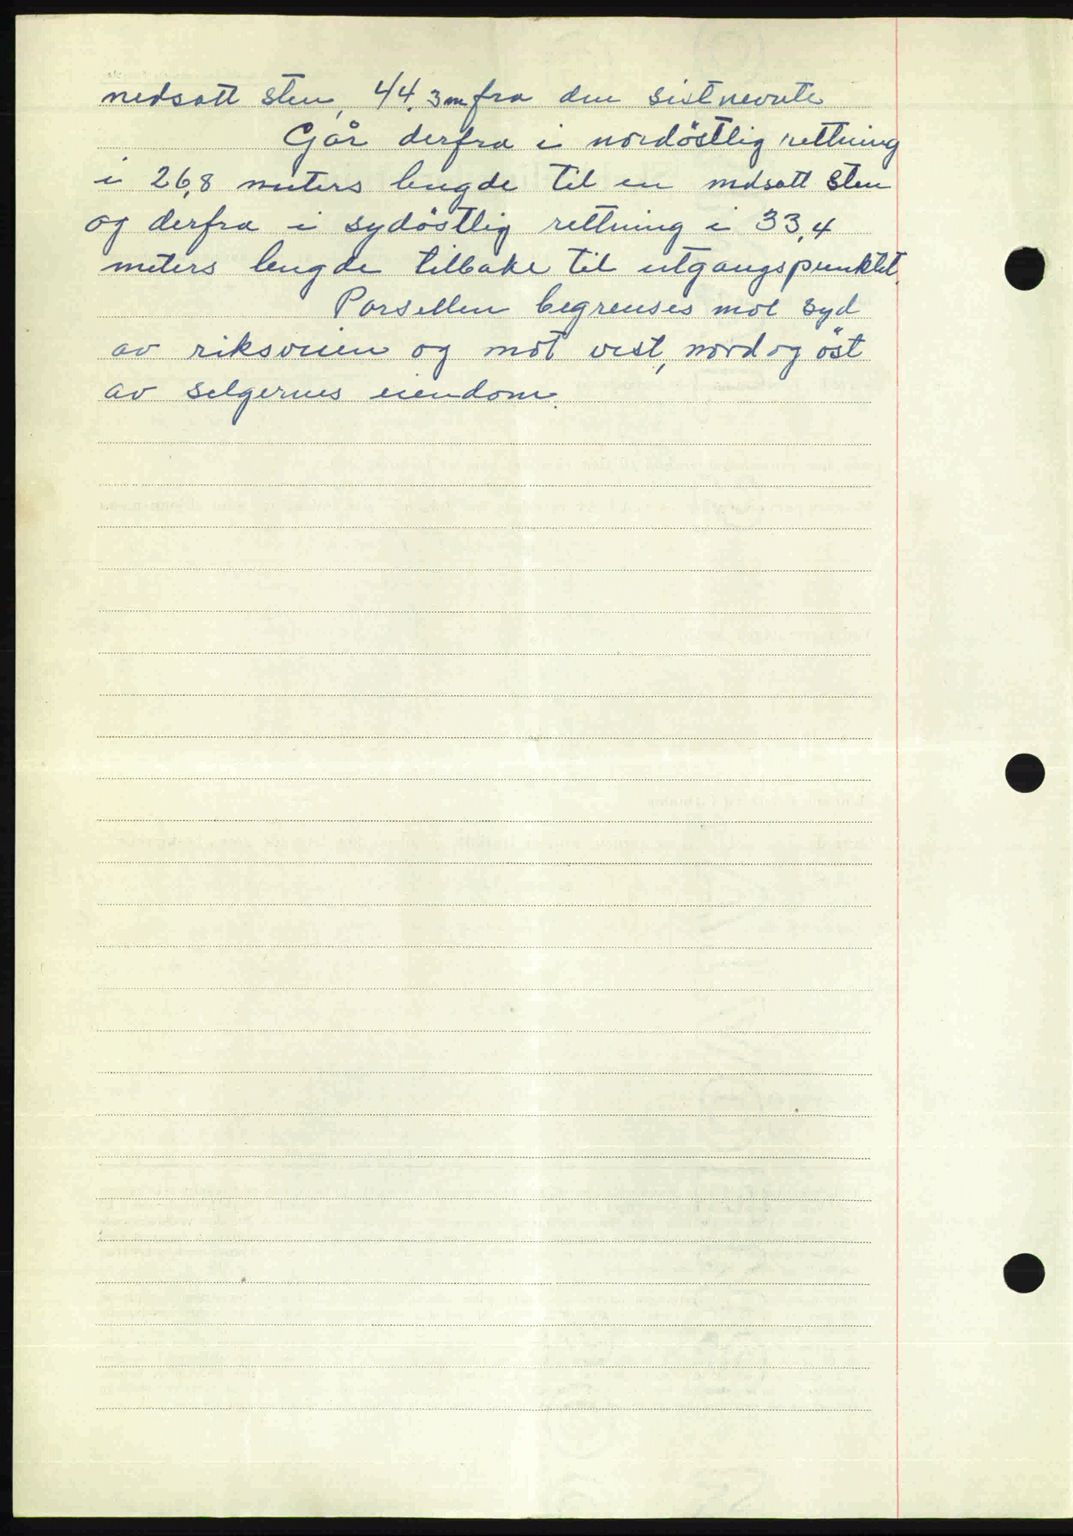 nedsatt sten, 44,3 m fra den sistnevnte
Går derfra i nordöstlig rettning
i 26,8 meters lengde til en nedsatt sten
og derfra i sydöstlig rettning i 33,4
meters lengde tilbake til utgangspunktet.
Parsellen begrenses mot syd
av riksveien og mot vest, nord og öst
av selgernes eiendom.